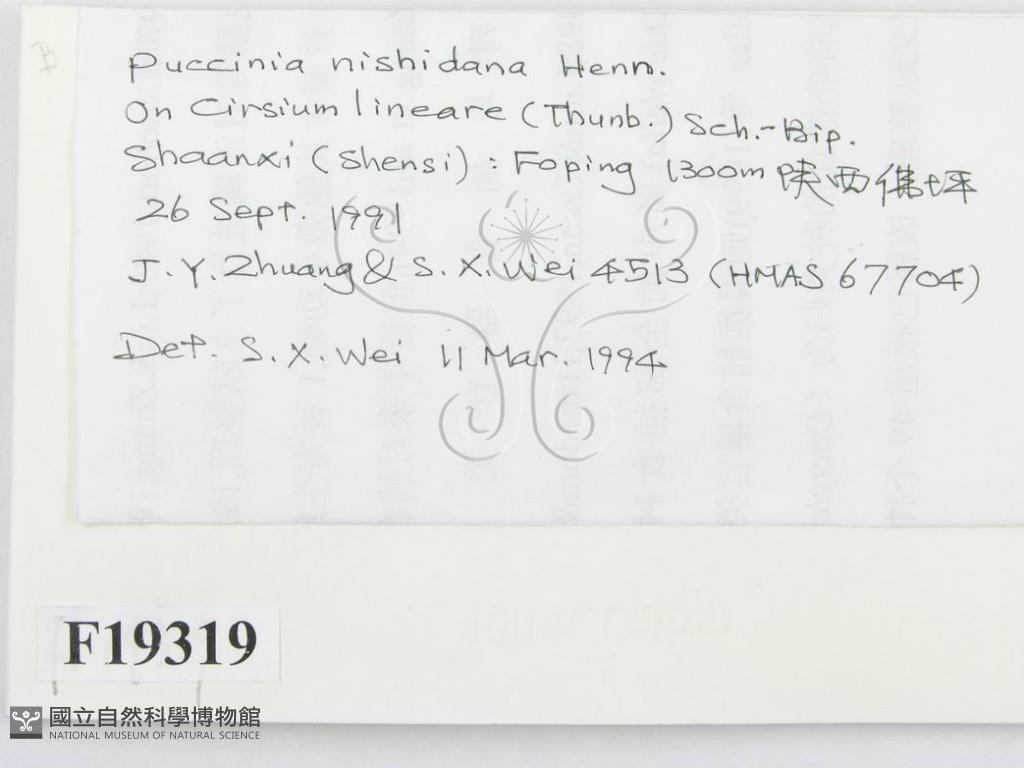 Puccinia nishidana Henn.
On Cirsium lineare (Thunb.) Sch.-Bip.
Shaanxi (Shensi) : Foping 1300m 陕西佛坪
26 Sept. 1991
J. Y. Zhuang & S. X. Wei 4513 (HMAS 67704)
Det. S. X. Wei 11 Mar. 1994
F19319
國立自然科學博物館
NATIONAL MUSEUM OF NATURAL SCIENCE